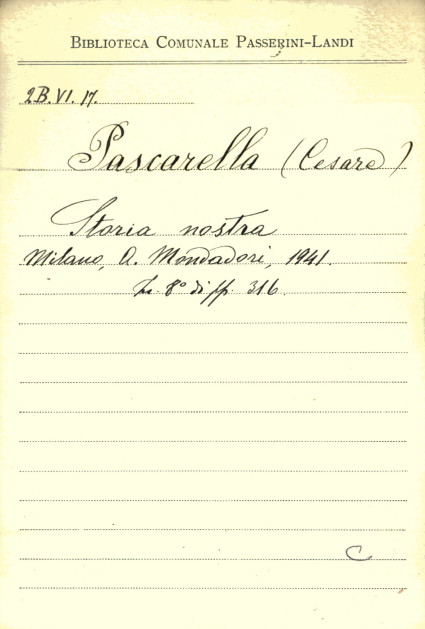 BIBLIOTECA COMUNALE PASSERINI-LANDI
2B.VI.17.
Pascarella (Cesare)
Storia nostra
Milano, A. Mondadori, 1941.
8° di pp. 316.
C